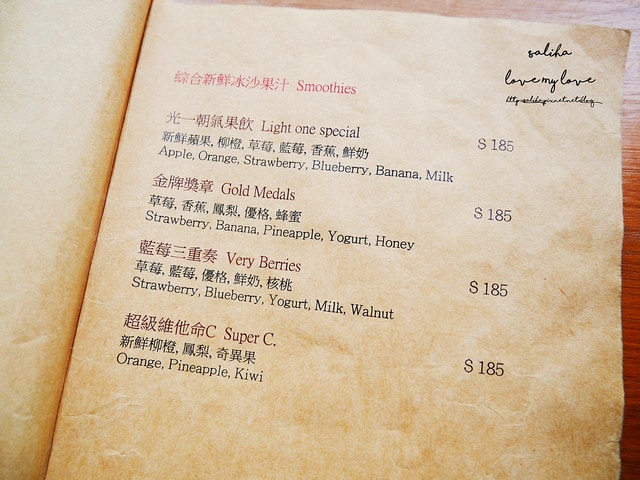 saliha
love my love
綜合新鮮冰沙果汁 Smoothies
光一朝氣果飲 Light one special
新鮮蘋果, 柳橙, 草莓, 藍莓, 香蕉, 鮮奶
Apple, Orange, Strawberry, Blueberry, Banana, Milk
$ 185
金牌獎章 Gold Medals
草莓, 香蕉, 鳳梨, 優格, 蜂蜜
Strawberry, Banana, Pineapple, Yogurt, Honey
$ 185
藍莓三重奏 Very Berries
草莓, 藍莓, 優格, 鮮奶, 核桃
Strawberry, Blueberry, Yogurt, Milk, Walnut
$ 185
超級維他命C Super C.
新鮮柳橙, 鳳梨, 奇異果
Orange, Pineapple, Kiwi
$ 185